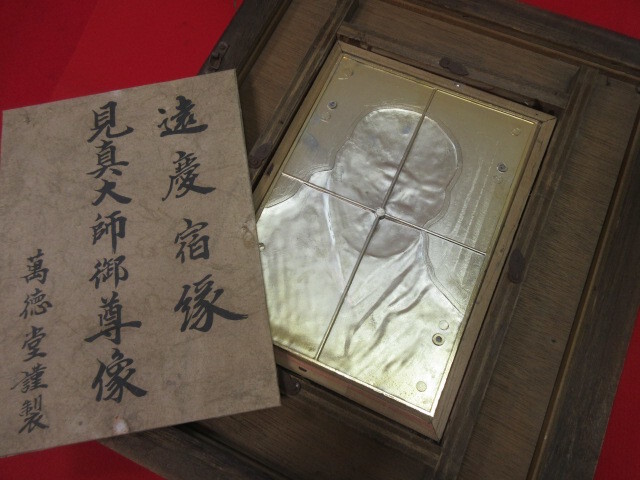 遠慶宿縁
見真大師御尊像
萬徳堂謹製